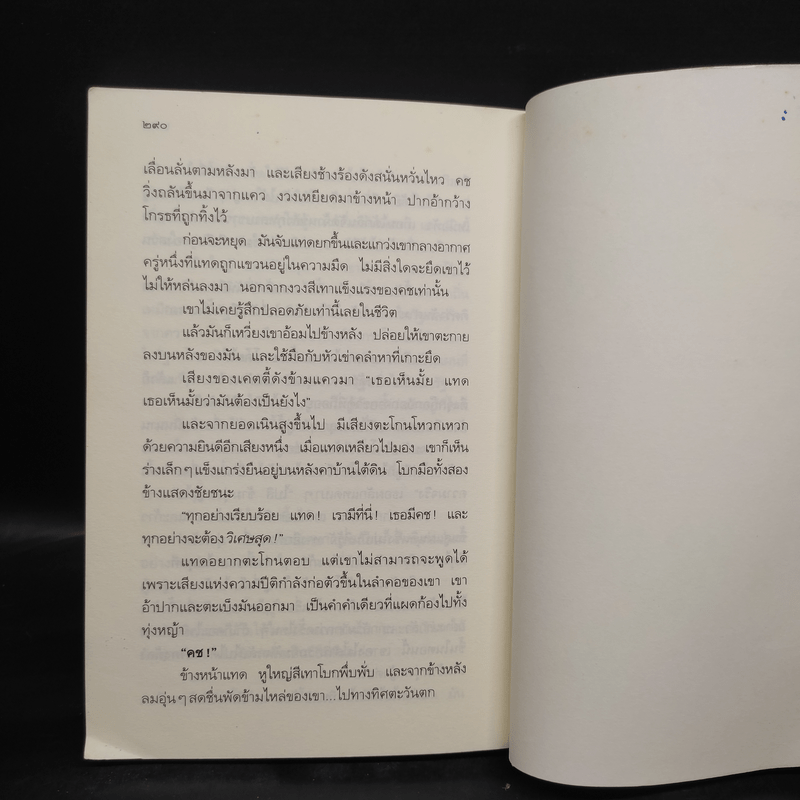 ๒๙๐
เลื่อนลั่นตามหลังมา และเสียงช้างร้องดังสนั่นหวั่นไหว คช
วิ่งถลันขึ้นมาจากแคว งวงเหยียดมาข้างหน้า ปากอ้ากว้าง
โกรธที่ถูกทิ้งไว้
ก่อนจะหยุด มันจับแทดยกขึ้นและแกว่งเขากลางอากาศ
ครู่หนึ่งที่แทดถูกแขวนอยู่ในความมืด ไม่มีสิ่งใดจะยึดเขาไว้
ไม่ให้หล่นลงมา นอกจากงวงสีเทาแข็งแรงของคชเท่านั้น
เขาไม่เคยรู้สึกปลอดภัยเท่านี้เลยในชีวิต
แล้วมันก็เหวี่ยงเขาอ้อมไปข้างหลัง ปล่อยให้เขาตะกาย
ลงบนหลังของมัน และใช้มือกับหัวเข่าคลำหาที่เกาะยึด
เสียงของเคตตี้ดังข้ามแควมา “เธอเห็นมั้ย แทด
เธอเห็นมั้ยว่ามันต้องเป็นยังไง”
และจากยอดเนินสูงขึ้นไป มีเสียงตะโกนโหวกเหวก
ด้วยความยินดีอีกเสียงหนึ่ง เมื่อแทดเหลียวไปมอง เขาก็เห็น
ร่างเล็กๆ แข็งแกร่งยืนอยู่บนหลังคาบ้านใต้ดิน โบกมือทั้งสอง
ข้างแสดงชัยชนะ
“ทุกอย่างเรียบร้อย แทด! เรามีที่นี่! เธอมีคช! และ
ทุกอย่างจะต้อง วิเศษสุด!”
แทดอยากตะโกนตอบ แต่เขาไม่สามารถจะพูดได้
เพราะเสียงแห่งความปีติกำลังก่อตัวขึ้นในลำคอของเขา เขา
อ้าปากและตะเบ็งมันออกมา เป็นคำคำเดียวที่แผดก้องไปทั้ง
ทุ่งหญ้า
“คช!”
ข้างหน้าแทด หูใหญ่สีเทาโบกพึ่บพั่บ และจากข้างหลัง
ลมอุ่นๆ สดชื่นพัดข้ามไหล่ของเขา...ไปทางทิศตะวันตก